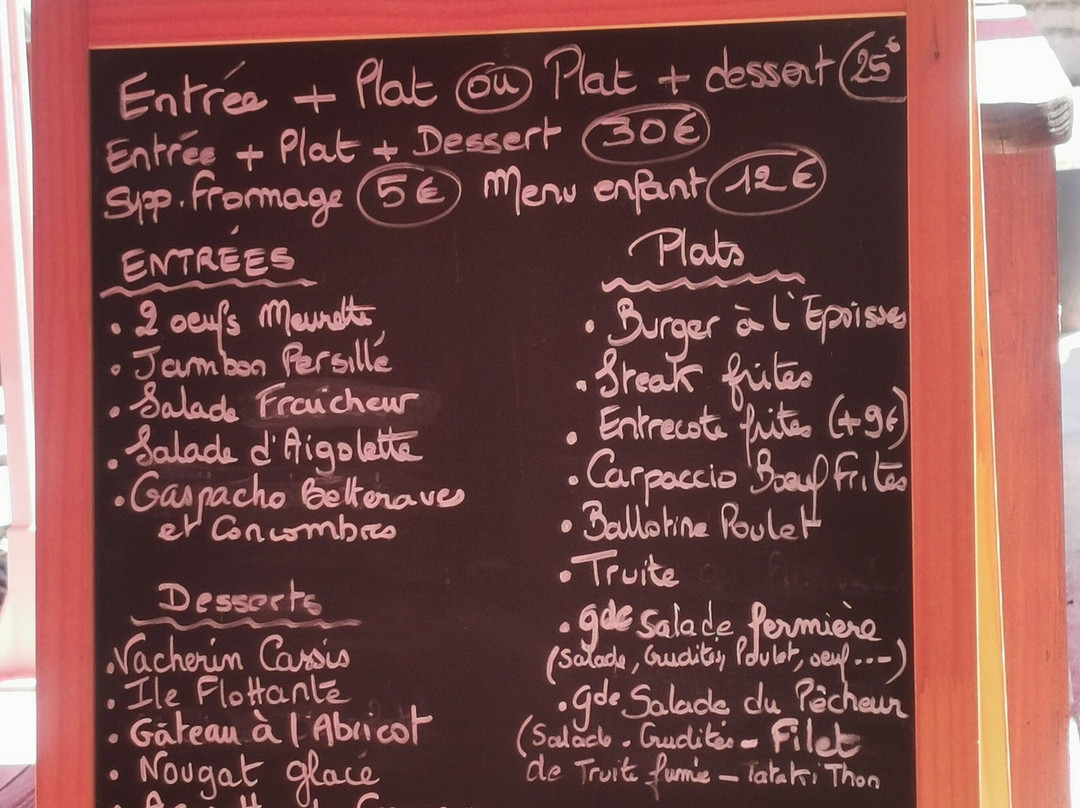 Entrée + Plat ou Plat + dessert 25€
Entrée + Plat + Dessert 30€
Supp. fromage 5€ Menu enfant 12€
ENTRÉES
• 2 oeufs Meurette
• Jambon Persillé
• Salade Fraicheur
• Salade d'Aigolette
• Gaspacho Betteraves
et Concombres
Desserts
• Vacherin Cassis
• Ile Flottante
• Gâteau à l'Abricot
• Nougat glacé
Plats
• Burger à l'Epoisses
• Steak frites
• Entrecote frites (+9€)
• Carpaccio Boeuf Frites
• Ballotine Poulet
• Truite
• gde Salade fermière
(Salade, Crudités, Poulet, oeuf...)
• gde Salade du Pêcheur
(Salade - Crudités - Filet
de Truite fumée - Tataki Thon